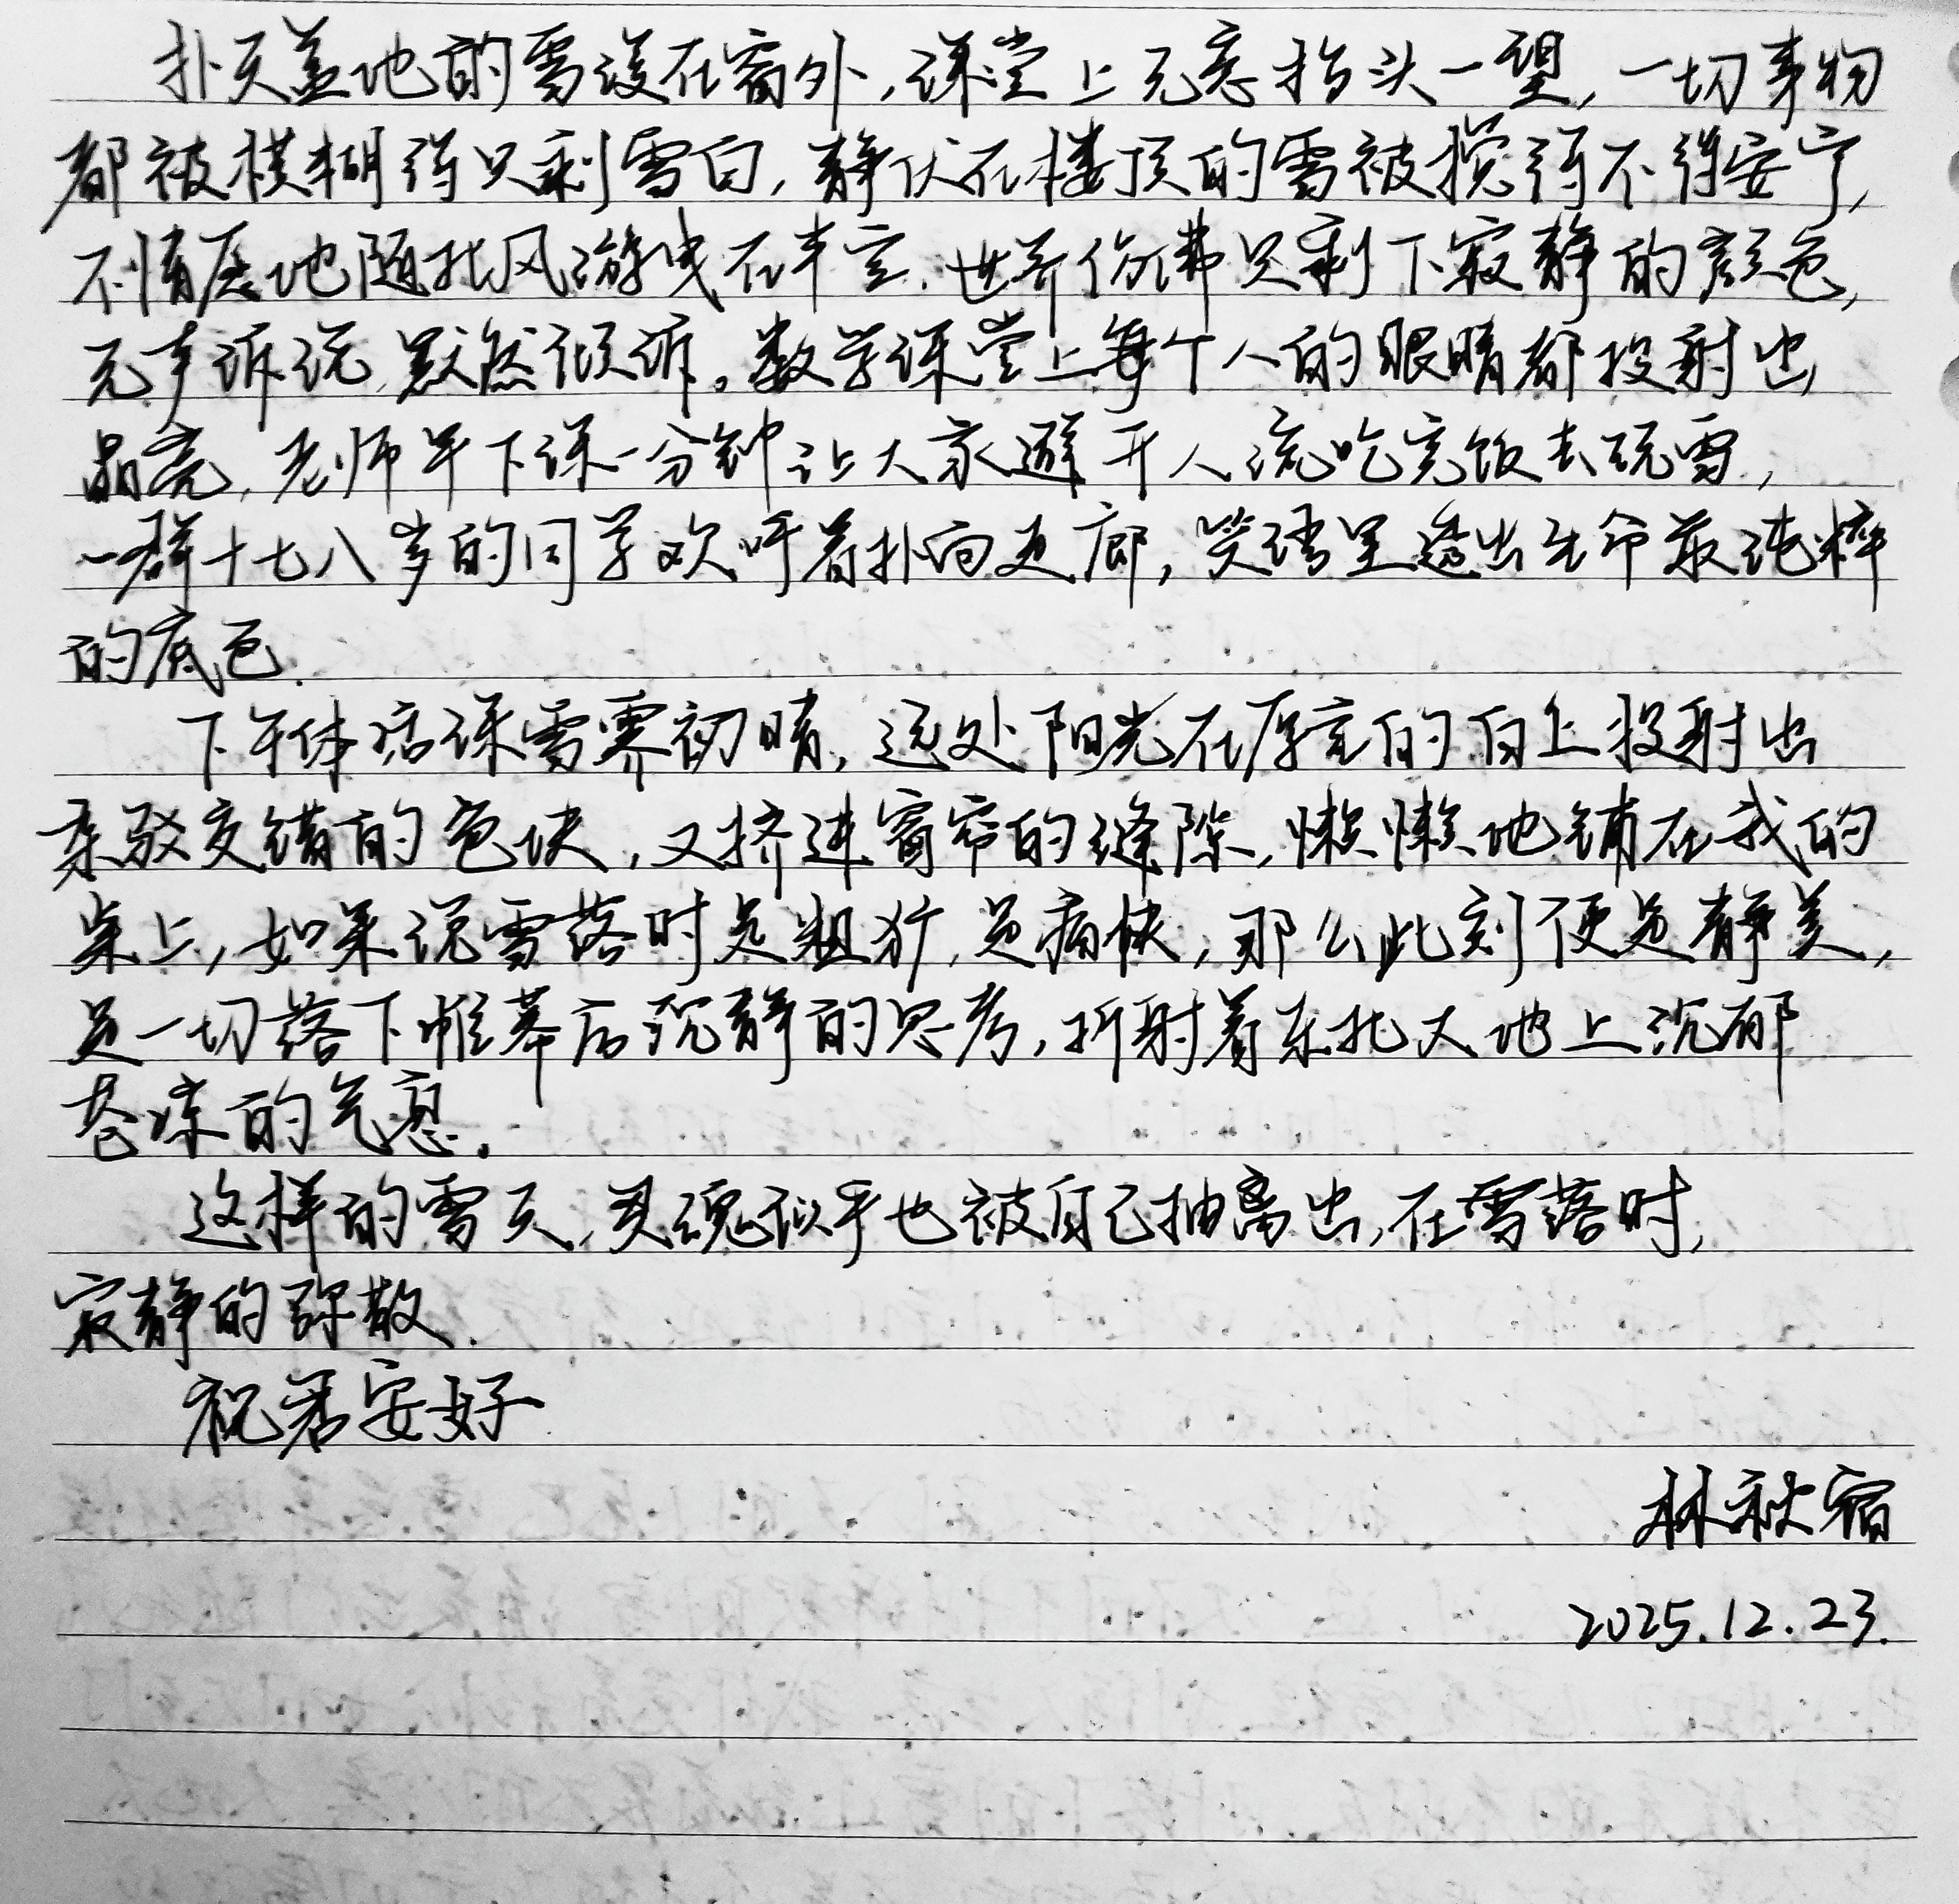 扑天盖地的雪漫在窗外,课堂上无意抬头一望,一切事物
都被模糊得只剩雪白,静伏在楼顶的雪被搅得不得安宁,
不情愿地随北风游曳在半空.世界仿佛只剩下寂静的颜色,
无声诉说,默然倾诉。数学课堂上每个人的眼睛都投射出
晶亮,老师早下课一分钟让大家避开人流吃完饭去玩雪,
一群十七八岁的同学欢呼着扑向走廊,笑语里透出生命最纯粹
的底色.
下午体活课雪霁初晴,远处阳光在厚重的白上投射出
杂驳交错的色块,又挤进窗帘的缝隙,懒懒地铺在我的
桌上,如果说雪落时是粗犷,是痛快,那么此刻便是静美,
是一切落下帷幕后沉静的思考,折射着东北大地上沉郁
苍凉的气息。
这样的雪天,灵魂似乎也被自己抽离出,在雪落时,
寂静的弥散.
祝君安好
林秋宿
2025.12.23.